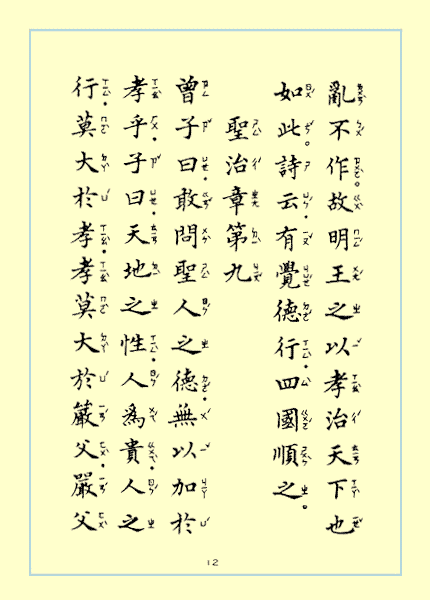 亂不作。故明王之以孝治天下也
如此。詩云．有覺德行．四國順之。
聖治章第九
曾子曰．敢問聖人之德．無以加於
孝乎．子曰．天地之性．人為貴．人之
行．莫大於孝．孝莫大於嚴父．嚴父
12